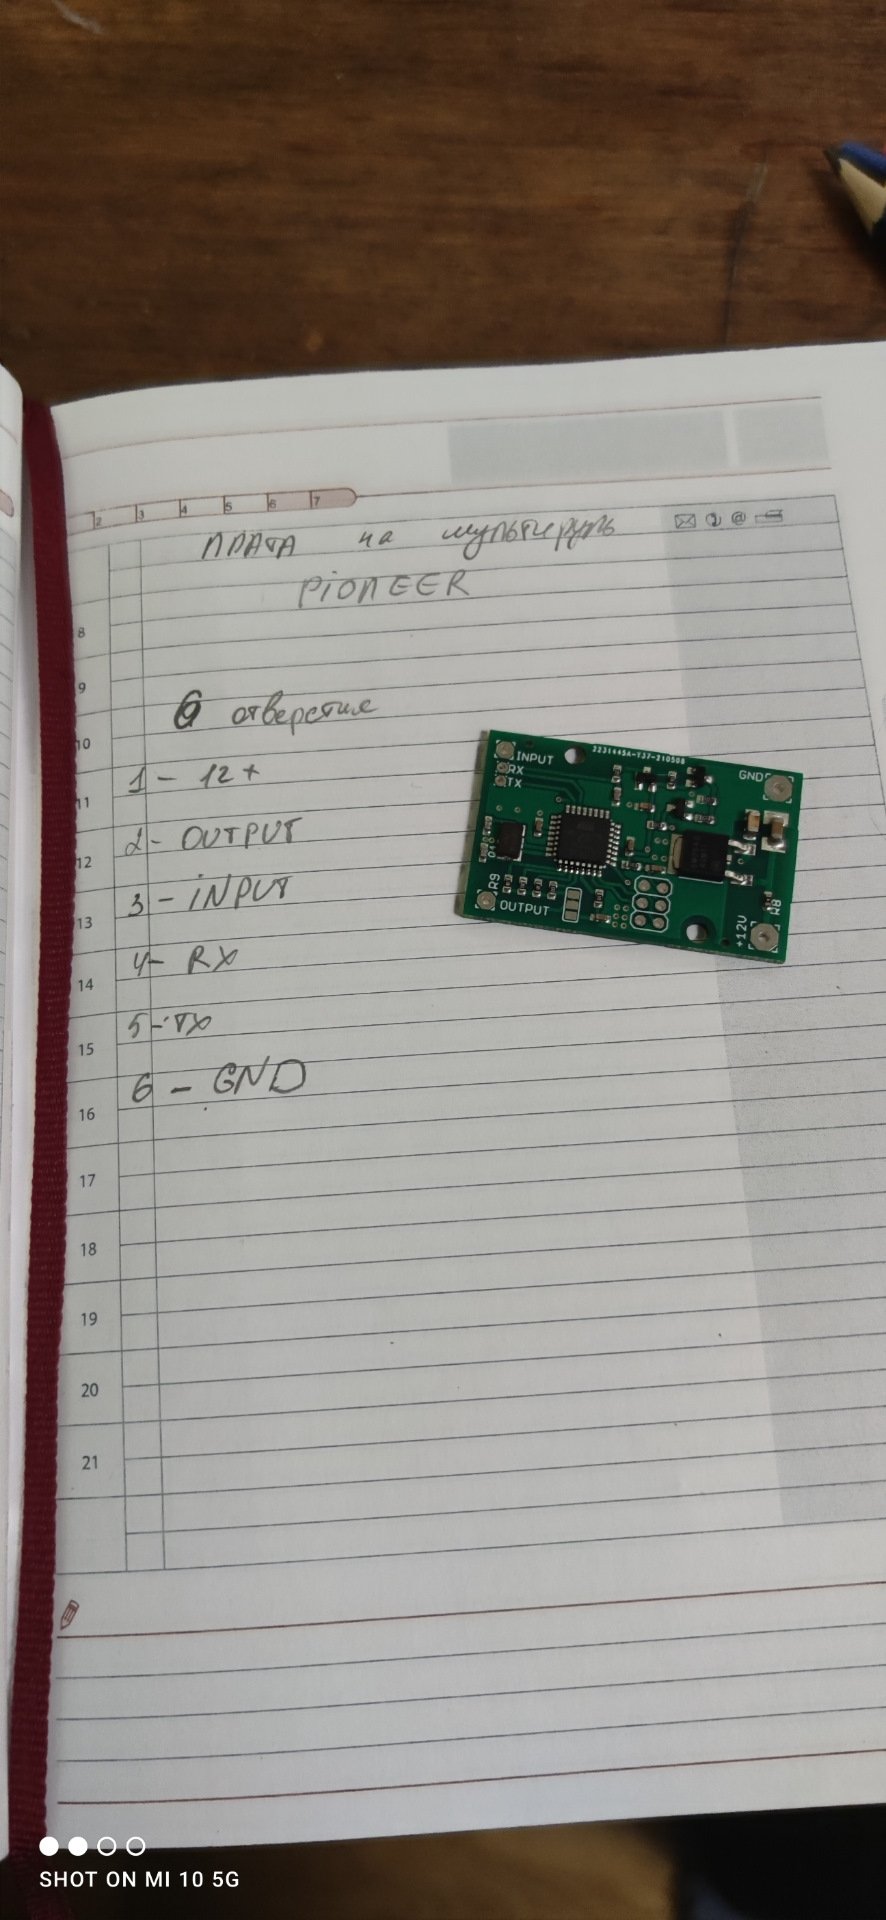 2 3 4 5 6 7
ПЛАТА на мультируль
PIONEER
8
9
6 отверстие
10
1 - 12+
11
2 - OUTPUT
12
3 - INPUT
13
4 - RX
14
5 - TX
15
6 - GND
16
17
18
19
20
21
INPUT
RX
TX
3231445A-Y37-210508
GND
R9
OUTPUT
+12V
R8
SHOT ON MI 10 5G